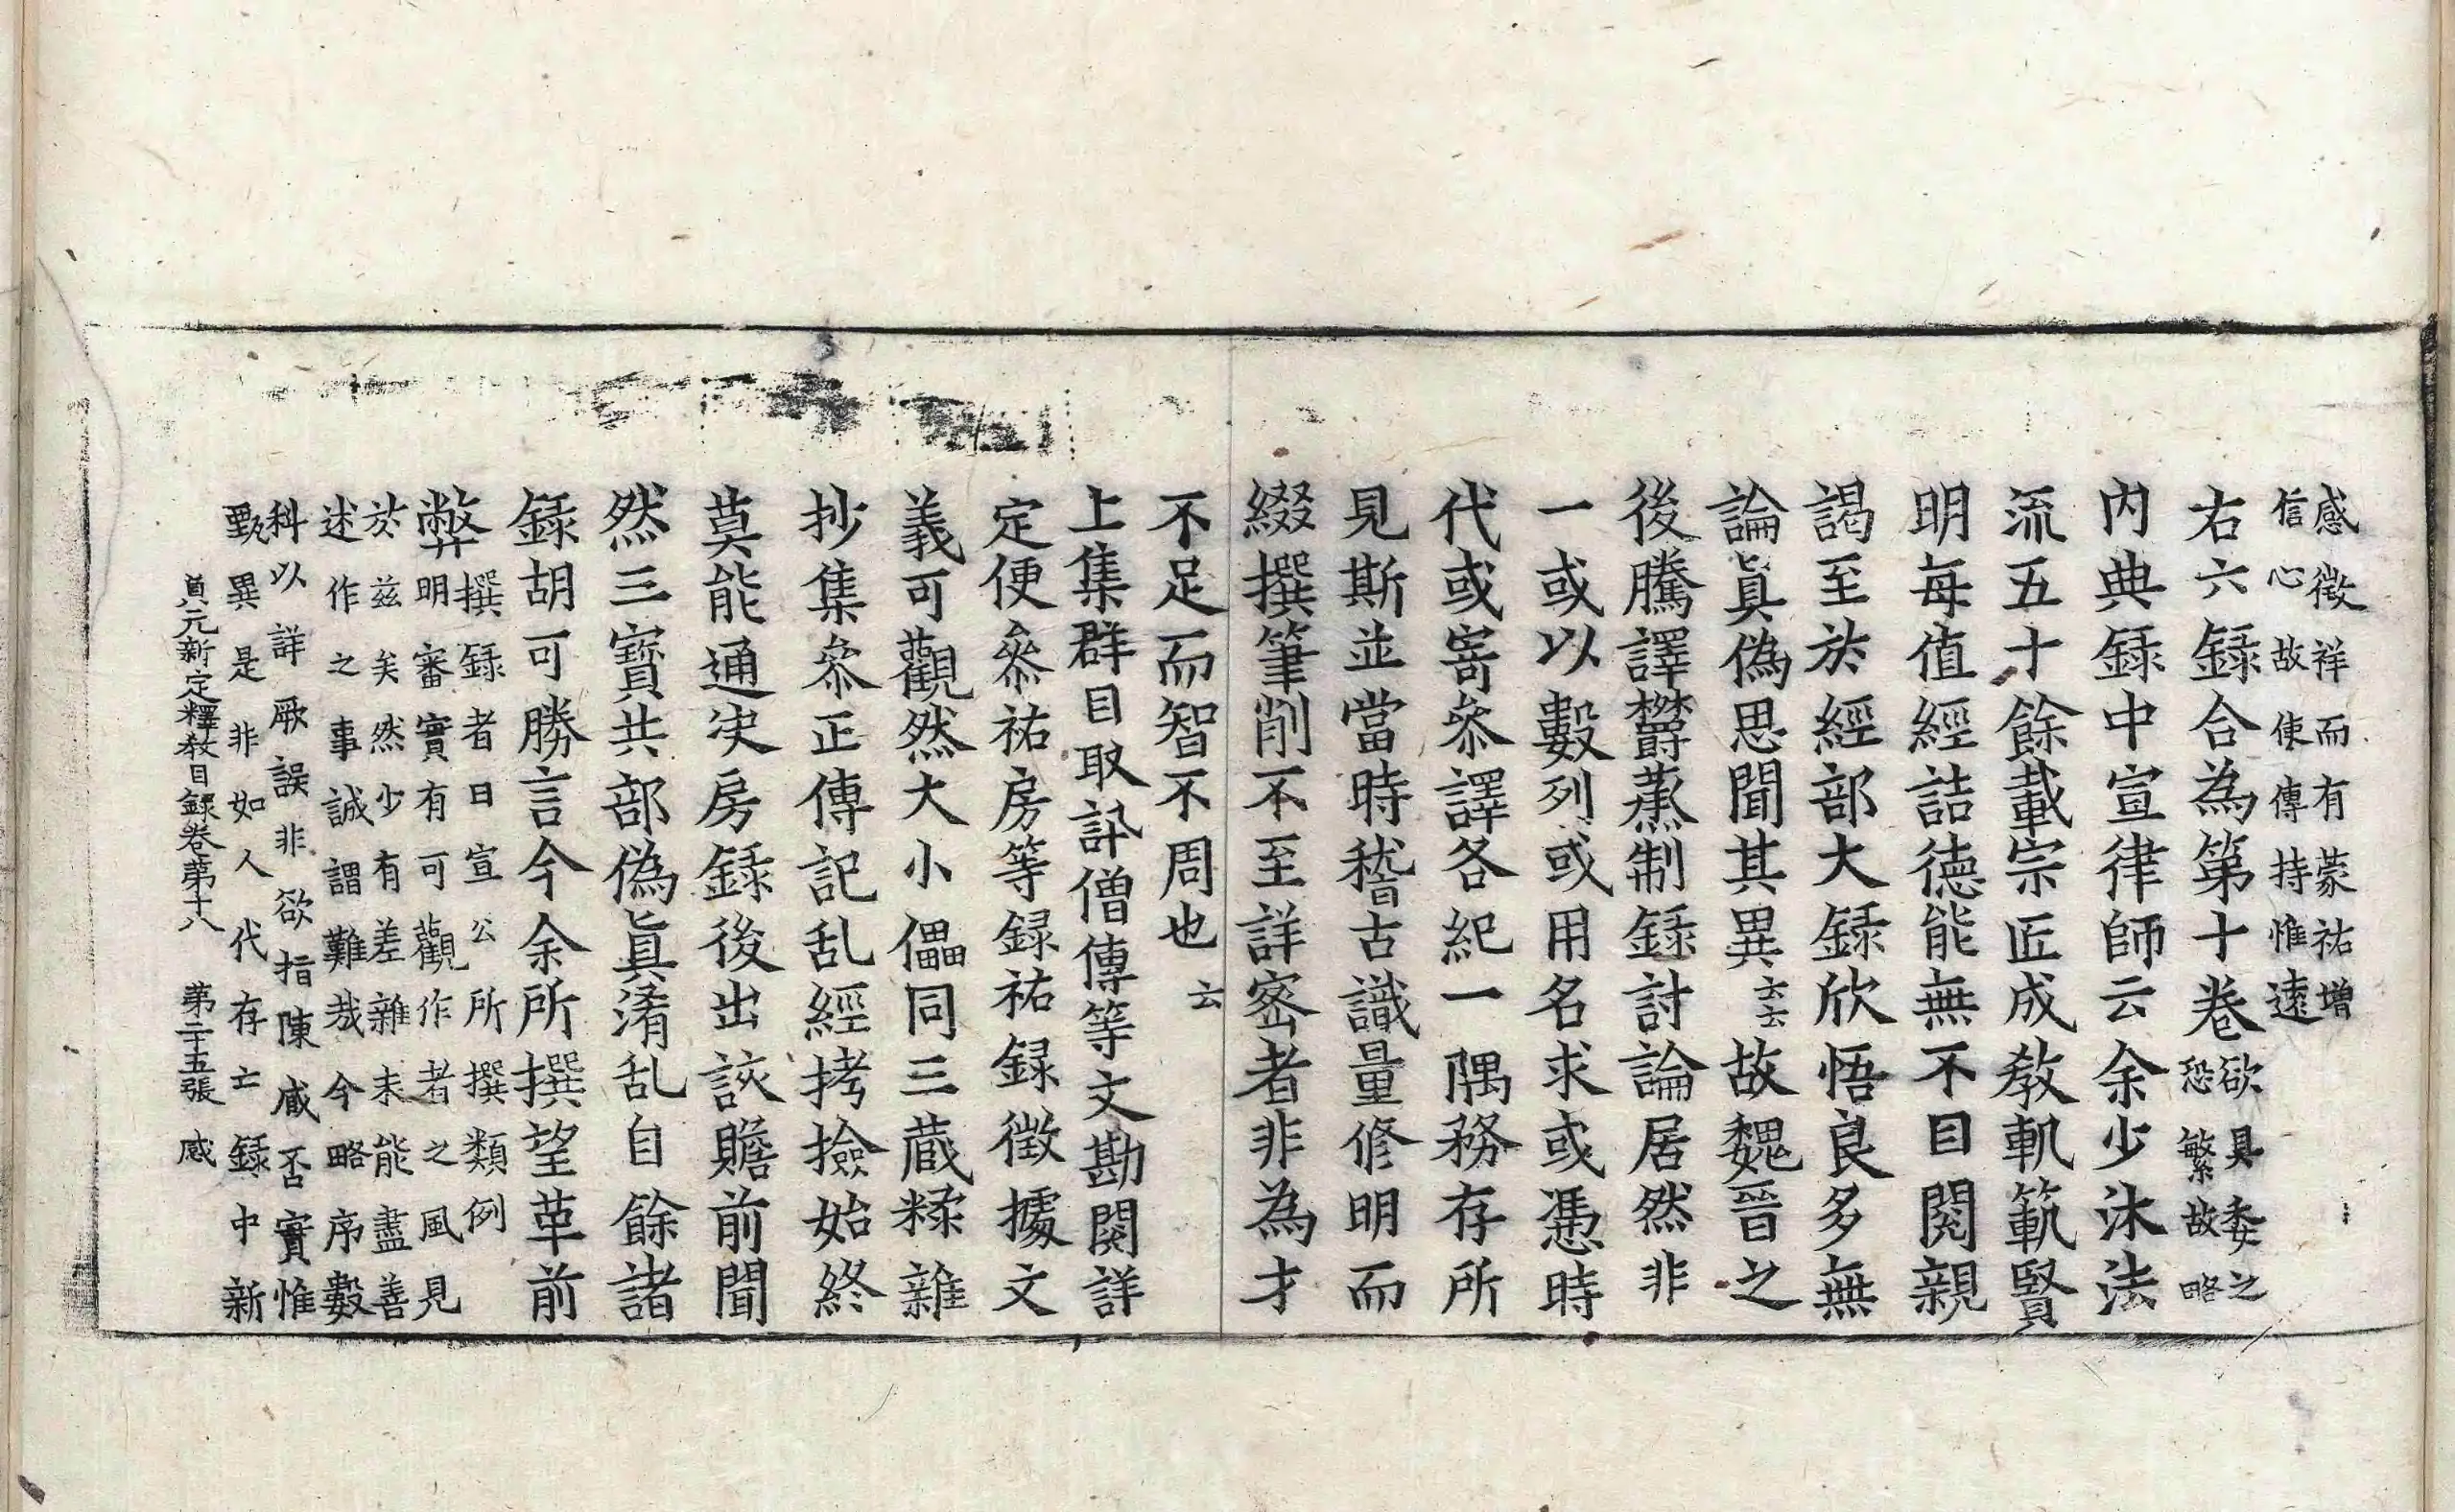 感徵祥而有蒙祐增
信心故使傳持惟遠
右六録合為第十卷欲具委之恐繁故略
内典録中宣律師云余少沐法
流五十餘載宗匠成教軌範賢
明每值經詰德能無不目閱親
謁至於經部大録欣悟良多無
論眞偽思聞其異云云故魏晉之
後騰譯欝蒸制録討論居然非
一或以數列或用名求或憑時
代或寄叅譯各紀一隅務存所
見斯並當時稽古識量修明而
綴撰筆削不至詳密者非為才
不足而智不周也云
上集群目取訃僧傳等文勘閱詳
定便叅祐房等録祐録徵據文
義可觀然大小儡同三蔵糅雜
抄集叅正傳記乱經拷撿始終
莫能通决房録後出該贍前聞
然三寶共部偽眞淆乱自餘諸
録胡可勝言今余所撰望革前
弊撰録者曰宣公所撰類例
明審實有可觀作者之風見
於兹矣然少有差雜未能盡善
述作之事誠謂難哉今略序數
科以詳厥誤非欲指陳臧否實惟
甄異是非如人代存亡録中新
貞元新定釋教目録卷第十八 第二十五張 感